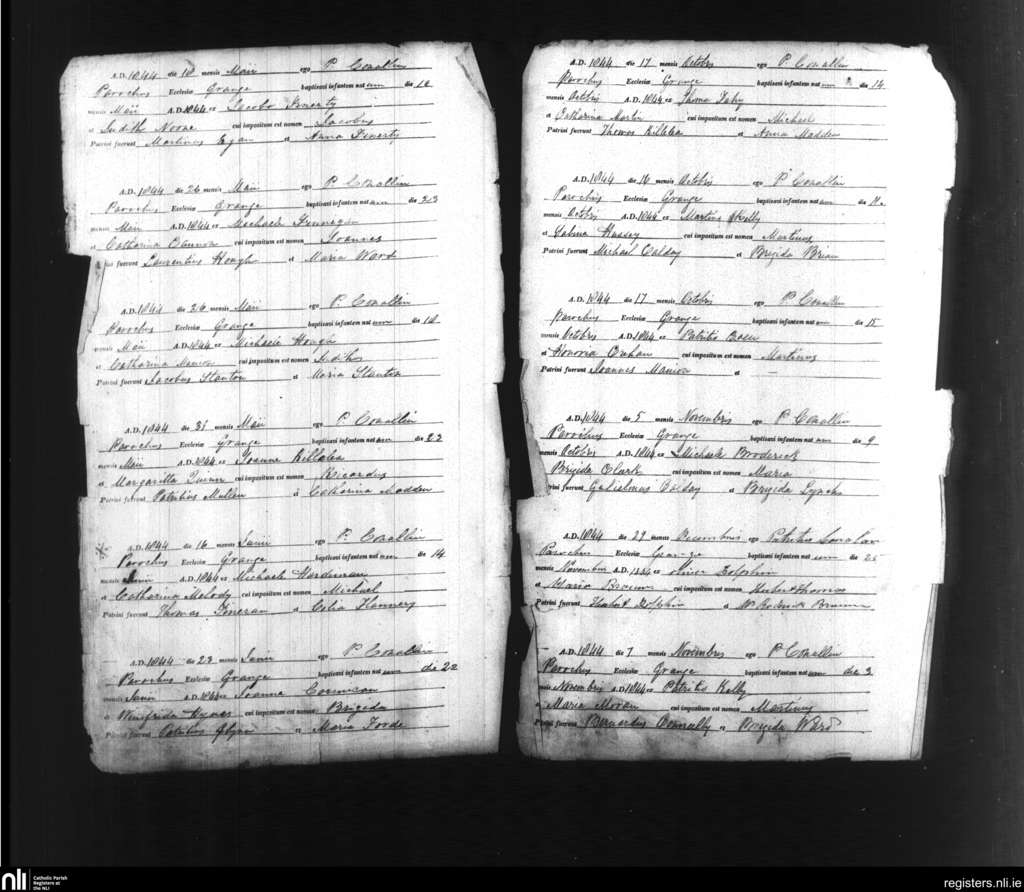 A.D. 1844 die 18 mensis Maii ego P. Conallin
Parochus Ecclesiæ Grange baptisavi infantem natum die 12
mensis Maii A.D. 1844 ex Jacobo Finerty
et Judith Noone cui impositum est nomen Jacobus
Patrini fuerunt Martinus Egan et Anna Finerty
A.D. 1844 die 26 mensis Maii ego P. Conallin
Parochus Ecclesiæ Grange baptisavi infantem natum die 23
mensis Maii A.D. 1844 ex Michaele Finnegan
et Catharina cui impositum est nomen Joannes
fuerunt Laurentius Hough et Maria Ward
A.D. 1844 die 26 mensis Maii ego P. Conallin
Parochus Ecclesiæ Grange baptisavi infantem natum die 18
mensis Maii A.D. 1844 ex Michaele Hough
et Catharina Manion cui impositum est nomen Judith
Patrini fuerunt Jacobus Stanton et Maria Stanton
A.D. 1844 die 31 mensis Maii ego P. Conallin
Parochus Ecclesiæ Grange baptisavi infantem natum die 22
mensis Maii A.D. 1844 ex Joanne Killalea
et Margaritta cui impositum est nomen Ricardus
Patrini fuerunt Patritius Mullin et Catharina Madden
A.D. 1844 die 16 mensis Junii ego P. Conallin
Parochus Ecclesiæ Grange baptisavi infantem natum die 14
mensis Junii A.D. 1844 ex Michaele Hardiman
et Catharina Melody cui impositum est nomen Michael
Patrini fuerunt Thomas Fineran et Celia Flannery
A.D. 1844 die 23 mensis Junii ego P. Conallin
Parochus Ecclesiæ Grange baptisavi infantem natum die 22
mensis Junii A.D. 1844 ex Joanne Cormican
et Winifrida Hynes cui impositum est nomen Brigida
Patrini fuerunt Patritius Glynn et Maria Forde
A.D. 1844 die 17 mensis Octobris ego P. Conallin
Parochus Ecclesiæ Grange baptisavi infantem natum die 14
mensis Octobris A.D. 1844 ex Thoma Fahy
et Catharina Martin cui impositum est nomen Michael
Patrini fuerunt Thomas Killalea et Anna Madden
A.D. 1844 die 16 mensis Octobris ego P. Conallin
Parochus Ecclesiæ Grange baptisavi infantem natum die
mensis Octobris A.D. 1844 ex Martino Skelly
et Sabina Hussey cui impositum est nomen Martinus
Patrini fuerunt Michael Calday et Brigida Brian
A.D. 1844 die 17 mensis Octobris ego P. Conallin
Parochus Ecclesiæ Grange baptisavi infantem natum die 15
mensis Octobris A.D. 1844 ex Patritio
et Honoria cui impositum est nomen Martinus
Patrini fuerunt Joannes Manion et
A.D. 1844 die 5 mensis Novembris ego P. Conallin
Parochus Ecclesiæ Grange baptisavi infantem natum die 9
mensis Octobris A.D. 1844 ex Michaele Broderick
Brigida Clark cui impositum est nomen Maria
fuerunt Gulielmus Calday et Brigida Lynch
A.D. 1844 die 29 mensis Decembris ego Patritio
Parochus Ecclesiæ Grange baptisavi infantem natum die 25
mensis Novembris A.D. 1844 ex Oliver Dolphin
et Maria Browne cui impositum est nomen Hubert Thomas
Patrini fuerunt Hubert Dolphin et
A.D. 1844 die 7 mensis Novembris ego P. Conallin
Parochus Ecclesiæ Grange baptisavi infantem natum die 3
mensis Novembris A.D. 1844 ex Patritio Kelly
et Maria Moran cui impositum est nomen Martinus
Patrini fuerunt Bernardus Connolly et Brigida Ward
nli Catholic Parish
Registers at
the NLI
registers.nli.ie